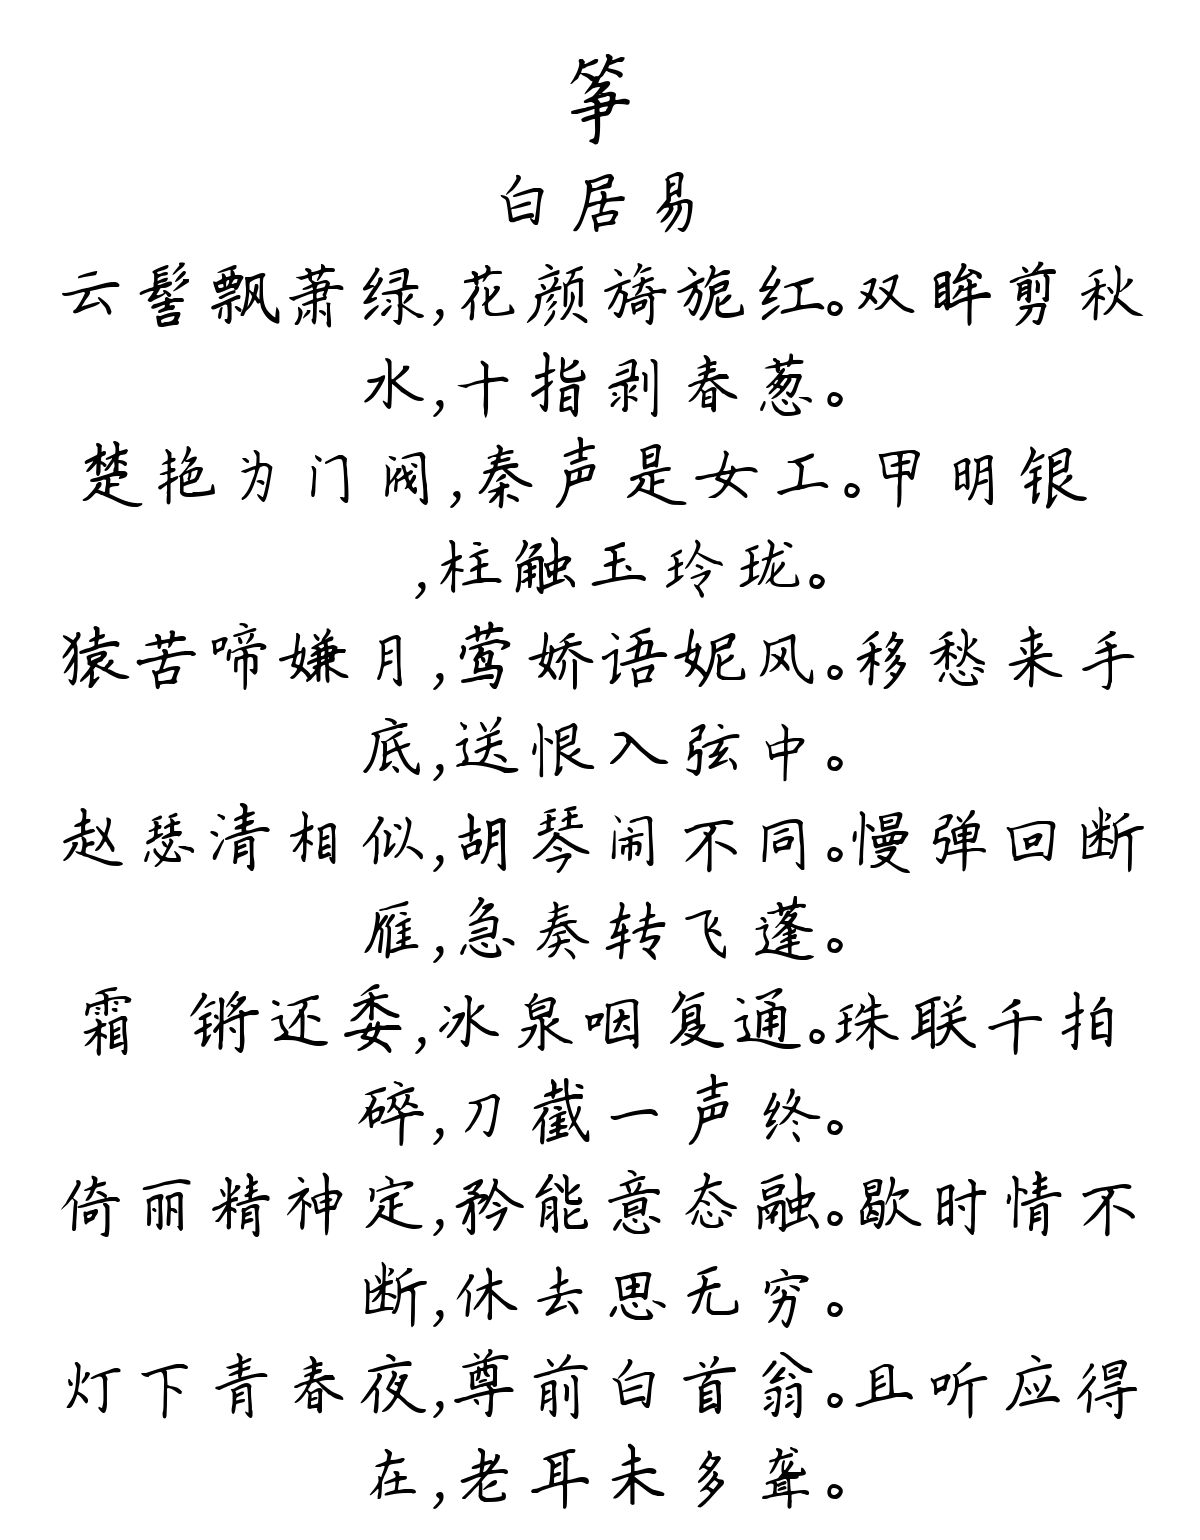 筝
白居易
云髻飘萧绿,花颜旖旎红。双眸剪秋
水,十指剥春葱。
楚艳为门阀,秦声是女工。甲明银
,柱触玉玲珑。
猿苦啼嫌月,莺娇语妮风。移愁来手
底,送恨入弦中。
赵瑟清相似,胡琴闹不同。慢弹回断
雁,急奏转飞蓬。
霜 锵还委,冰泉咽复通。珠联千拍
碎,刀截一声终。
倚丽精神定,矜能意态融。歇时情不
断,休去思无穷。
灯下青春夜,尊前白首翁。且听应得
在,老耳未多聋。